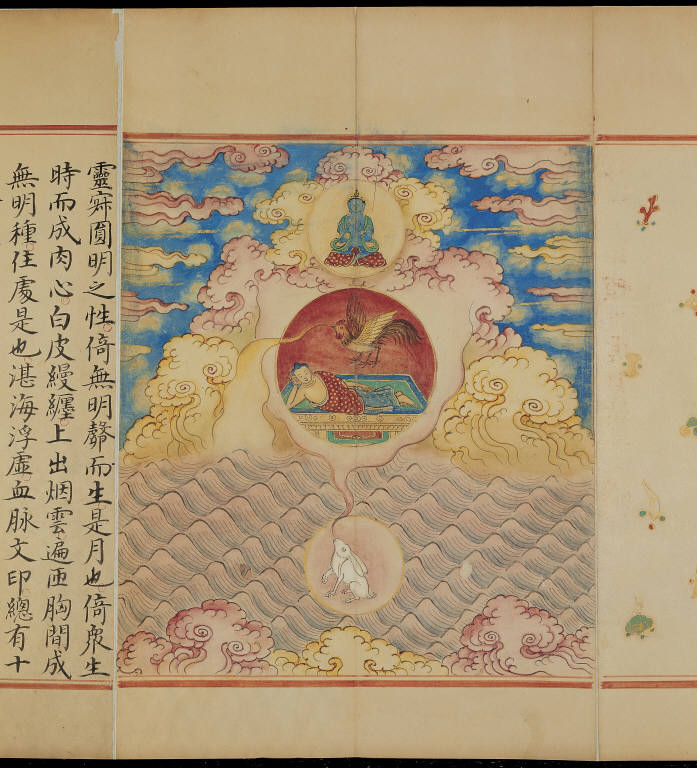 靈寂圓明之性倚無明鼓而生是月也倚眾生
時而成肉心白皮縵纒上出烟雲遍匝胸間成
無明種住處是也湛海浮虛血脉文印總有十